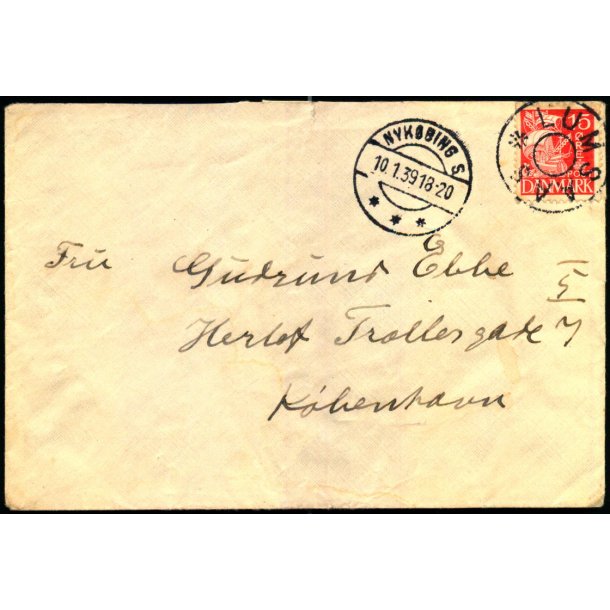 NYKØBING S
10.1.39 18-20
* * *
* LUMSAAS
5
DANMARK
Fru Gudrund Ebbe
Herlof Trollesgade 7
København